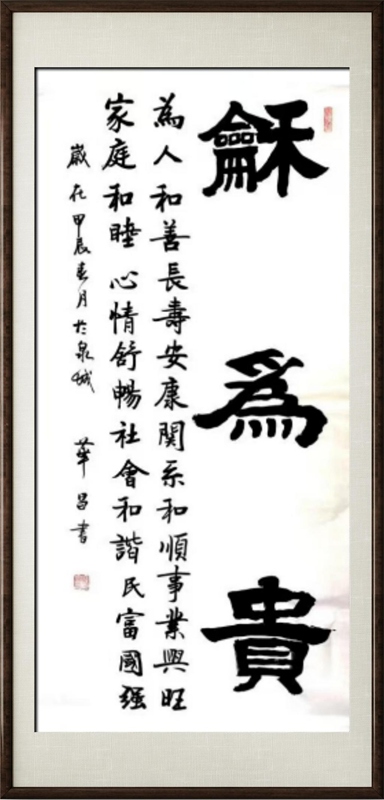 龢為貴
為人和善長壽安康関系和順事業興旺
家庭和睦心情舒暢社會和諧民富國强
歲在甲辰春月於泉城
華昌書